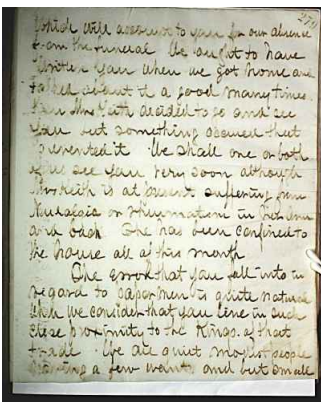 279
which will account to you for our absence
from the funeral We ought to have
written you when we got home and
talked about it a good many times
Mrs Keith decided to go and see
you but something occured that
prevented it We shall one or both
of us see you very soon although
Mrs Keith is at present suffering from
Neuralgia or rhumatism in her arm
and back She has been confined to
the house all of this month
The error that you fall into in
regard to paper men is quite natural
when we consider that you live in such
close proximity to the Kings of that
trade We are quiet modest people
a few wants and but small